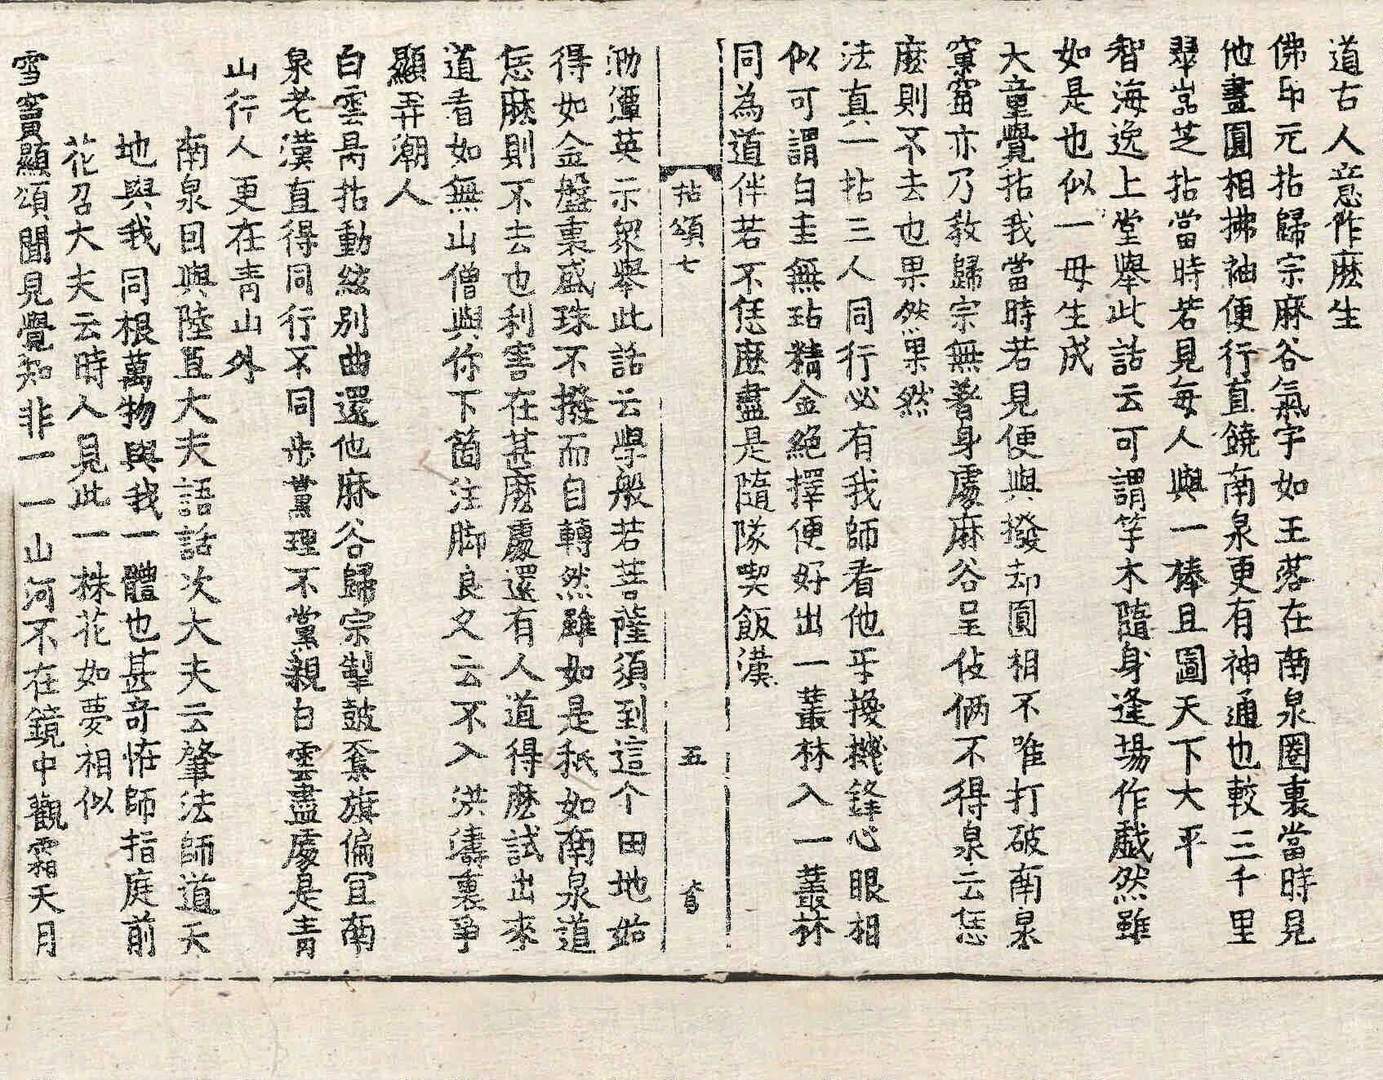 道古人意作麽生
佛印元拈歸宗麻谷氣宇如王落在南泉圈裏當時見
他畫圓相拂袖便行直饒南泉更有神通也較三千里
翠嵓芝拈當時若見每人與一棒且圖天下大平
智海逸上堂舉此話云可謂竿木隨身逢場作戱然雖
如是也似一母生成
大潙喆拈我當時若見便與撥却圓相不唯打破南泉
窠窟亦乃敎歸宗無著身處麻谷呈伎倆不得泉云恁
麽則不去也果然果然
法眞一拈三人同行必有我師看他牙擡機鋒心眼相
似可謂白圭無玷精金絕擇便好出一叢林入一叢林
同為道伴若不恁麽盡是隨隊喫飯漢
拈頌七
五
泐潭英示衆舉此話云學般若菩薩須到這个田地始
得如金盤裏盛珠不撥而自轉然雖如是秖如南泉道
恁麽則不去也利害在甚麽處還有人道得麽試出來
道看如無山僧與你下箇注脚良久云不入洪濤裏爭
顯弄潮人
白雲昺拈動絃別曲還他麻谷歸宗掣皷奪旗偏宜南
泉老漢直得同行不同步黨理不黨親白雲盡處是靑
山行人更在靑山外
南泉因與陸亘大夫語話次大夫云肇法師道天
地與我同根萬物與我一體也甚奇怪師指庭前
花召大夫云時人見此一株花如夢相似
雪竇顯頌聞見覺知非一一山河不在鏡中觀霜天月